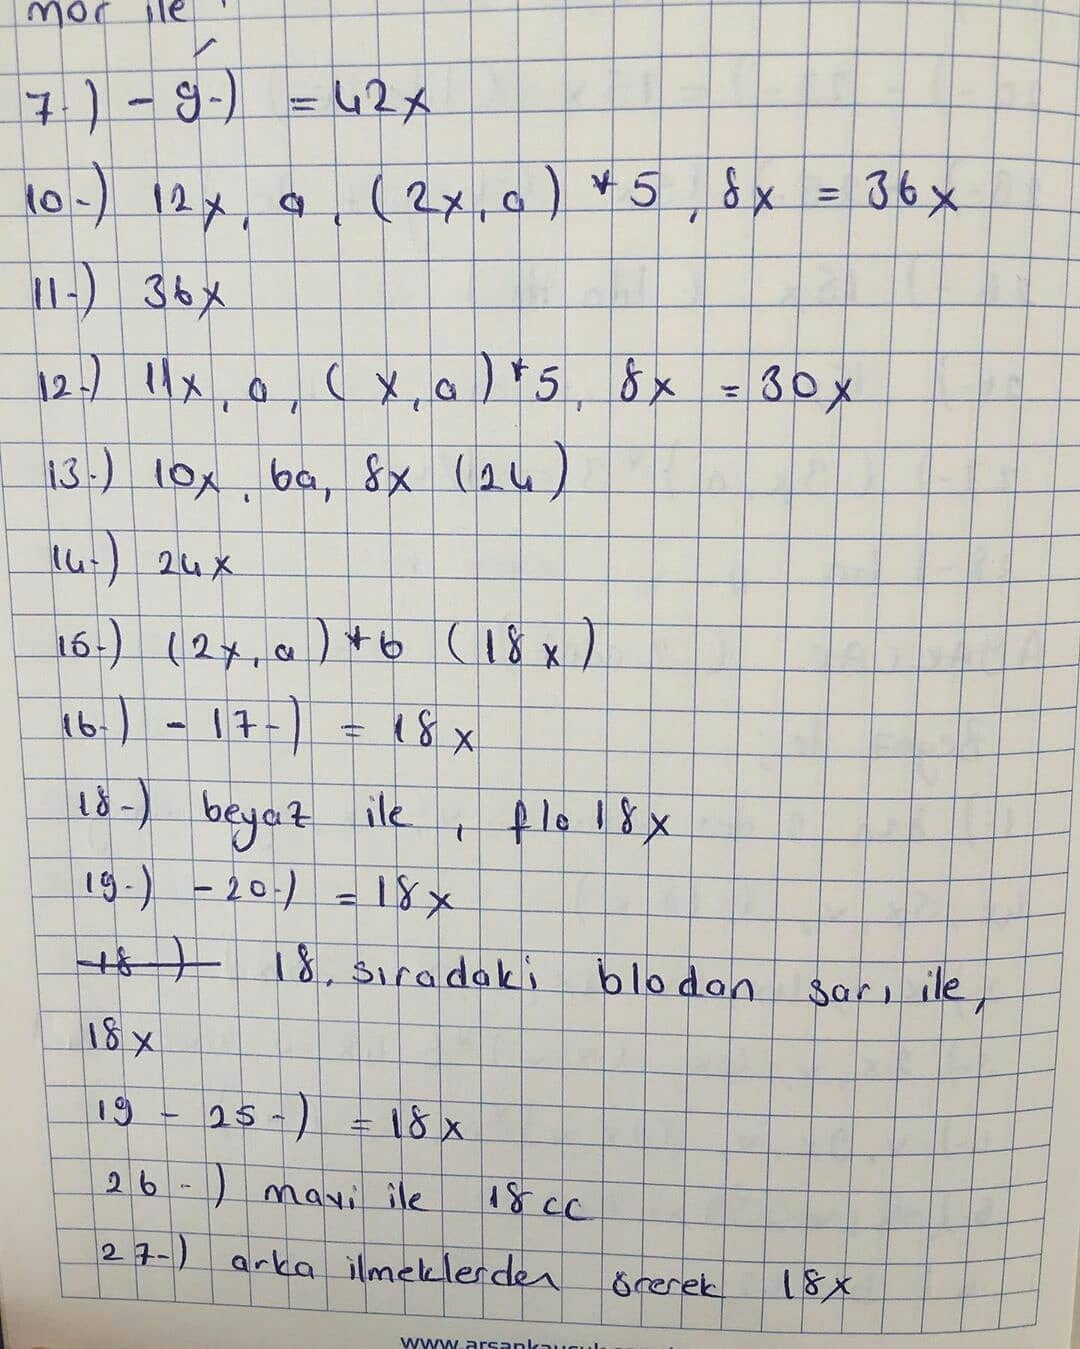 mor ile
7-) - 9-) = 42x
10-) 12x, a, (2x, a) *5, 8x = 36x
11-) 36x
12-) 11x, a, (x, a) *5, 8x = 30x
13-) 10x, 6a, 8x (24)
14-) 24x
15-) (2x, a) *6 (18x)
16-) - 17-) = 18x
18-) beyaz ile, flo 18x
19-) - 20-) = 18x
18-) 18. sıradaki blodan sarı ile,
18x
19 - 25-) = 18x
26-) mavi ile 18cc
27-) arka ilmeklerden örerek 18x